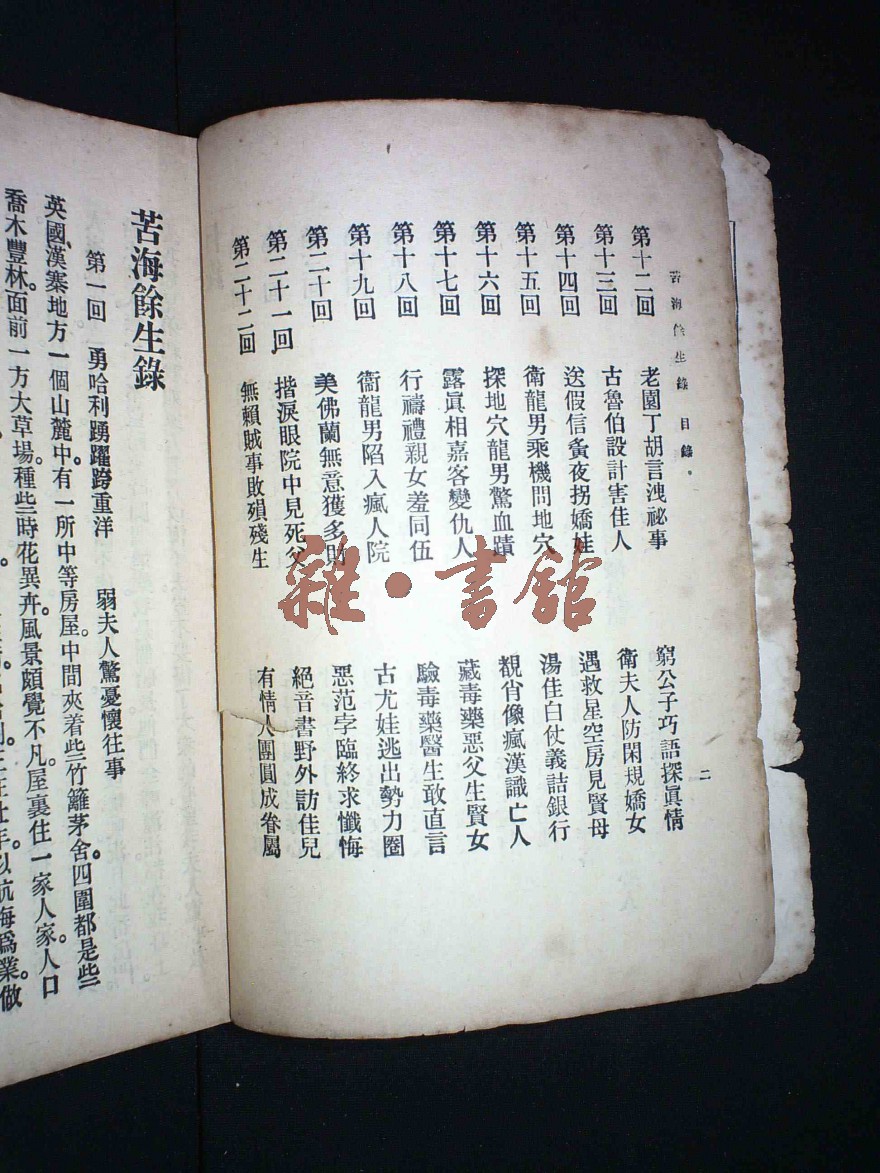 苦海餘生錄 目錄。 二
第十二回 老園丁胡言洩祕事 窮公子巧語探眞情
第十三回 古魯伯設計害佳人 衛夫人防閑規嬌女
第十四回 送假信夤夜拐嬌娃 遇救星空房見賢母
第十五回 衛龍男乘機問地穴 湯佳白仗義詰銀行
第十六回 探地穴龍男驚血蹟 覩肖像瘋漢識亡人
第十七回 露眞相嘉客變仇人 藏毒藥惡父生賢女
第十八回 行禱禮親女羞同伍 驗毒藥醫生敢直言
第十九回 衞龍男陷入瘋人院 古尤娃逃出勢力圈
第二十回 美佛蘭無意獲多財 惡范孛臨終求懺悔
第二十一回 揩淚眼院中見死父 絕音書野外訪佳兒
第二十二回 無賴賊事敗殞殘生 有情人團圓成眷屬
雜·書館
苦海餘生錄
第一回 勇哈利踴躍跨重洋 弱夫人驚憂懷往事
英國漢寨地方一個山麓中有一所中等房屋。中間夾着些竹籬茅舍。四圍都是些
喬木豐林。面前一方大草場。種些時花異卉。風景頗覺不凡。屋裏住一家人家。人口